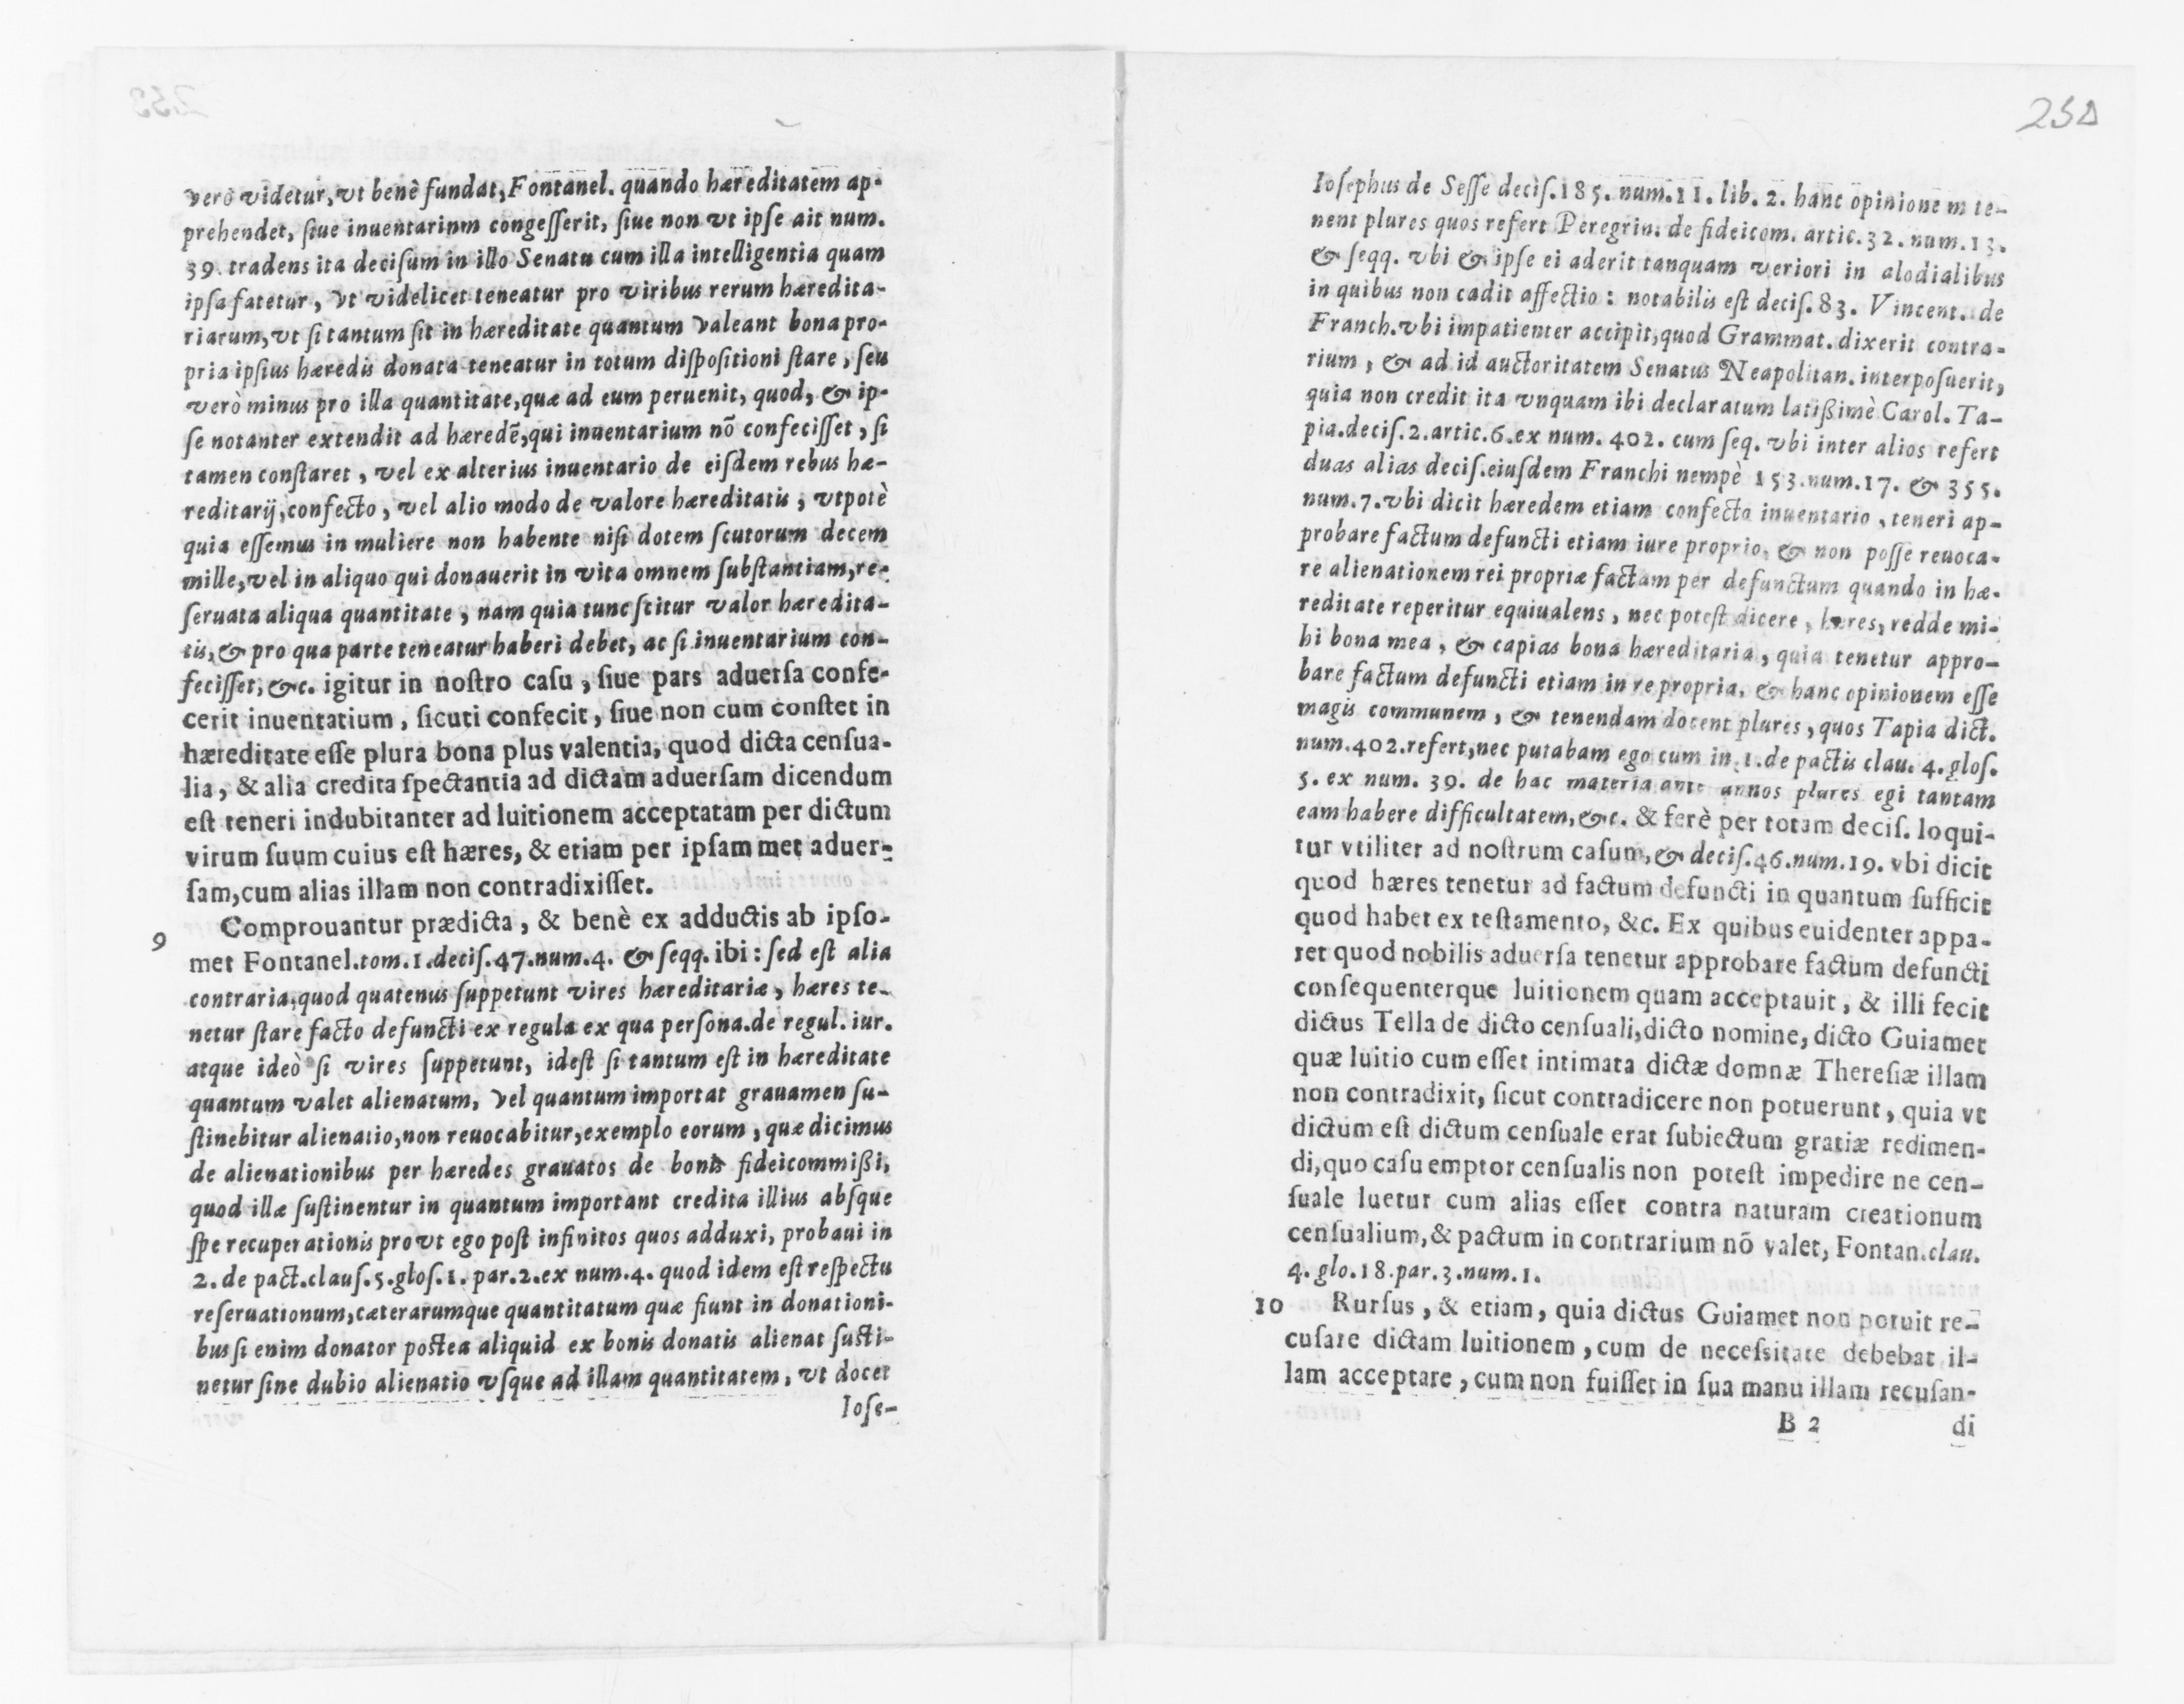 verò videtur, vt benè fundat, Fontanel. quando hæreditatem ap-
prehendet, ſiue inuentarinm congeſſerit, ſiue non vt ipſe ait num.
39. tradens ita deciſum in illo Senatu cum illa intelligentia quam
ipſa fatetur, vt videlicet teneatur pro viribus rerum hæredita-
riarum, vt ſi tantum ſit in hæreditate quantum valeant bona pro-
pria ipſius hæredis donata teneatur in totum diſpoſitioni ſtare, ſeu
verò minus pro illa quantitate, quæ ad eum peruenit, quod, & ip-
ſe notanter extendit ad hæredẽ, qui inuentarium nõ confeciſſet, ſi
tamen conſtaret, vel ex alterius inuentario de eiſdem rebus hæ-
reditarij, confecto, vel alio modo de valore hæreditatis, vtpotè
quia eſſemus in muliere non habente niſi dotem ſcutorum decem
mille, vel in aliquo qui donauerit in vita omnem ſubſtantiam, re-
ſeruata aliqua quantitate, nam quia tunc ſcitur valor hæredita-
tis, & pro qua parte teneatur haberi debet, ac ſi inuentarium con-
feciſſet, &c. igitur in noſtro caſu, ſiue pars aduerſa confe-
cerit inuentatium, ſicuti confecit, ſiue non cum conſtet in
hæreditate eſſe plura bona plus valentia, quod dicta cenſua-
lia, & alia credita ſpectantia ad dictam aduerſam dicendum
eſt teneri indubitanter ad luitionem acceptatam per dictum
virum ſuum cuius eſt hæres, & etiam per ipſam met aduer-
ſam, cum alias illam non contradixiſſet.
9 Comprouantur prædicta, & benè ex adductis ab ipſo-
met Fontanel. tom. 1. deciſ. 47. num. 4. & ſeqq. ibi: ſed eſt alia
contraria, quod quatenus ſuppetunt vires hæreditariæ, hæres te-
netur ſtare facto defuncti ex regula ex qua perſona. de regul. iur.
atque ideò ſi vires ſuppetunt, ideſt ſi tantum eſt in hæreditate
quantum valet alienatum, vel quantum importat grauamen ſu-
ſtinebitur alienatio, non reuocabitur, exemplo eorum, quæ dicimus
de alienationibus per hæredes grauatos de bonis fideicommißi,
quod illæ ſuſtinentur in quantum important credita illius abſque
ſpe recuperationis pro vt ego poſt infinitos quos adduxi, probaui in
2. de pact. clauſ. 5. gloſ. 1. par. 2. ex num. 4. quod idem eſt reſpectu
reſeruationum, cæterarumque quantitatum quæ fiunt in donationi-
bus ſi enim donator poſtea aliquid ex bonis donatis alienat ſuſti-
netur ſine dubio alienatio vſque ad illam quantitatem, vt docet
Ioſe-
250
Ioſephus de Seſſe deciſ. 185. num. 11. lib. 2. hanc opinionem te-
nent plures quos refert Peregrin. de fideicom. artic. 32. num. 13.
& ſeqq. vbi & ipſe ei aderit tanquam veriori in alodialibus
in quibus non cadit affectio: notabilis eſt deciſ. 83. Vincent. de
Franch. vbi impatienter accipit, quod Grammat. dixerit contra-
rium, & ad id auctoritatem Senatus Neapolitan. interpoſuerit,
quia non credit ita vnquam ibi declaratum latißimè Carol. Ta-
pia. deciſ. 2. artic. 6. ex num. 402. cum ſeq. vbi inter alios refert
duas alias deciſ. eiuſdem Franchi nempè 153. num. 17. & 355.
num. 7. vbi dicit hæredem etiam confecto inuentario, teneri ap-
probare factum defuncti etiam iure proprio, & non poſſe reuoca-
re alienationem rei propriæ factam per defunctum quando in hæ-
reditate reperitur equiualens, nec poteſt dicere, hæres, redde mi-
hi bona mea, & capias bona hæreditaria, quia tenetur appro-
bare factum defuncti etiam in re propria, & hanc opinionem eſſe
magis communem, & tenendam docent plures, quos Tapia dict.
num. 402. refert, nec putabam ego cum in. 1. de pactis clau. 4. gloſ.
5. ex num. 39. de hac materia ante annos plures egi tantam
eam habere difficultatem, &c. & ferè per totam deciſ. loqui-
tur vtiliter ad noſtrum caſum, & deciſ. 46. num. 19. vbi dicit
quod hæres tenetur ad factum defuncti in quantum ſufficit
quod habet ex teſtamento, &c. Ex quibus euidenter appa-
ret quod nobilis aduerſa tenetur approbare factum defuncti
conſequenterque luitionem quam acceptauit, & illi fecit
dictus Tella de dicto cenſuali, dicto nomine, dicto Guiamet
quæ luitio cum eſſet intimata dictæ domnæ Thereſiæ illam
non contradixit, ſicut contradicere non potuerunt, quia vt
dictum eſt dictum cenſuale erat ſubiectum gratiæ redimen-
di, quo caſu emptor cenſualis non poteſt impedire ne cen-
ſuale luetur cum alias eſſet contra naturam creationum
cenſualium, & pactum in contrarium nõ valet, Fontan. clau.
4. glo. 18. par. 3. num. 1.
10 Rurſus, & etiam, quia dictus Guiamet non potuit re-
cuſare dictam luitionem, cum de neceſsitate debebat il-
lam acceptare, cum non fuiſſet in ſua manu illam recuſan-
B 2 di